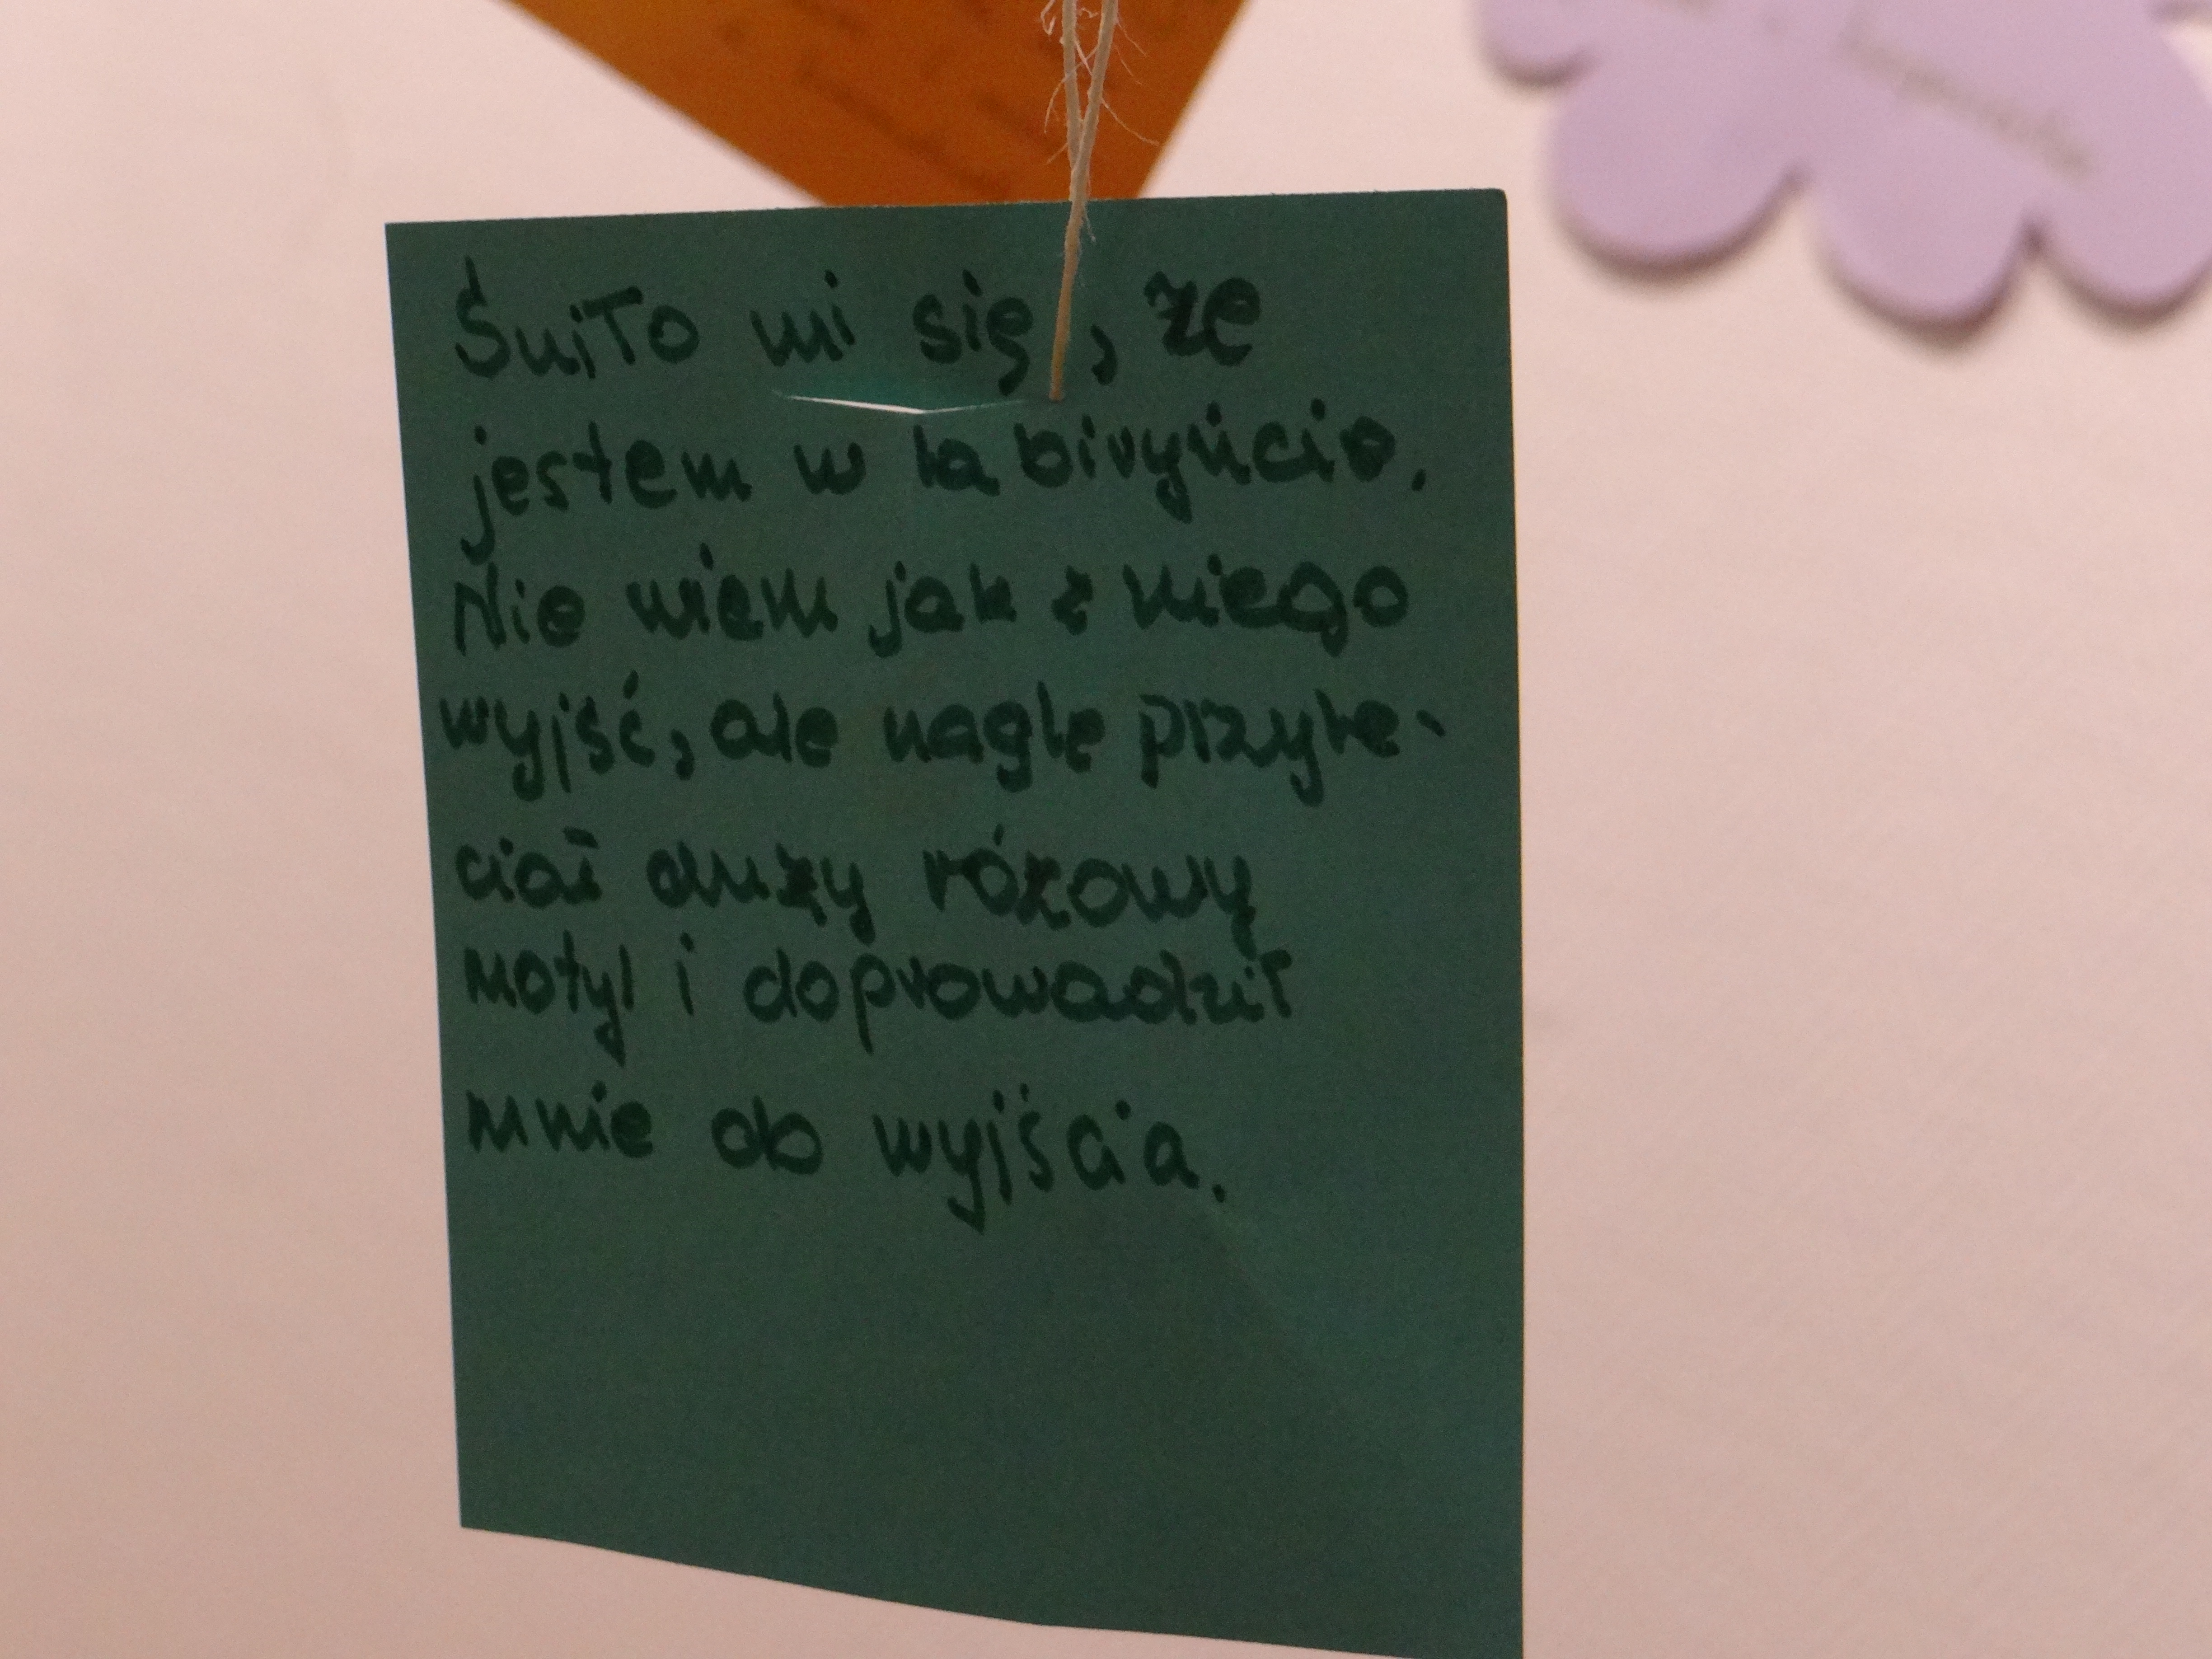 Śniło mi się, że
jestem w labiryńcie.
Nie wiem jak z niego
wyjść, ale nagle przyle-
ciał duży różowy
motyl i doprowadził
mnie do wyjścia.